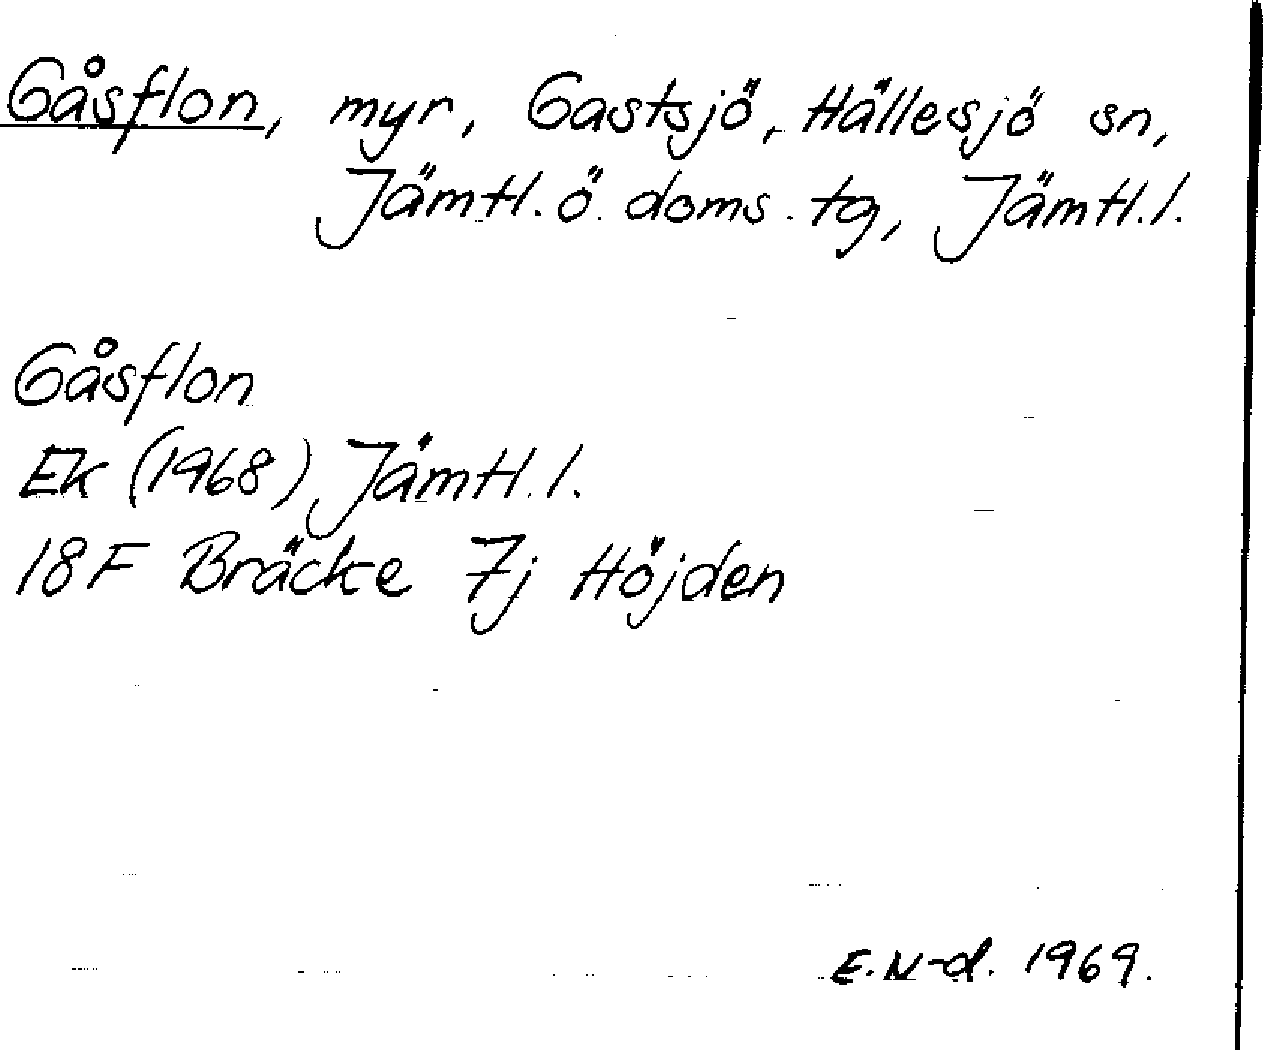 Gåsflon, myr, Gastsjö, Hällesjö sn,
Jämtl. ö. doms. tg, Jämtl. l.
Gåsflon
EK (1968) Jämtl. l.
18F Bräcke 7j Höjden
E. N-d. 1969.